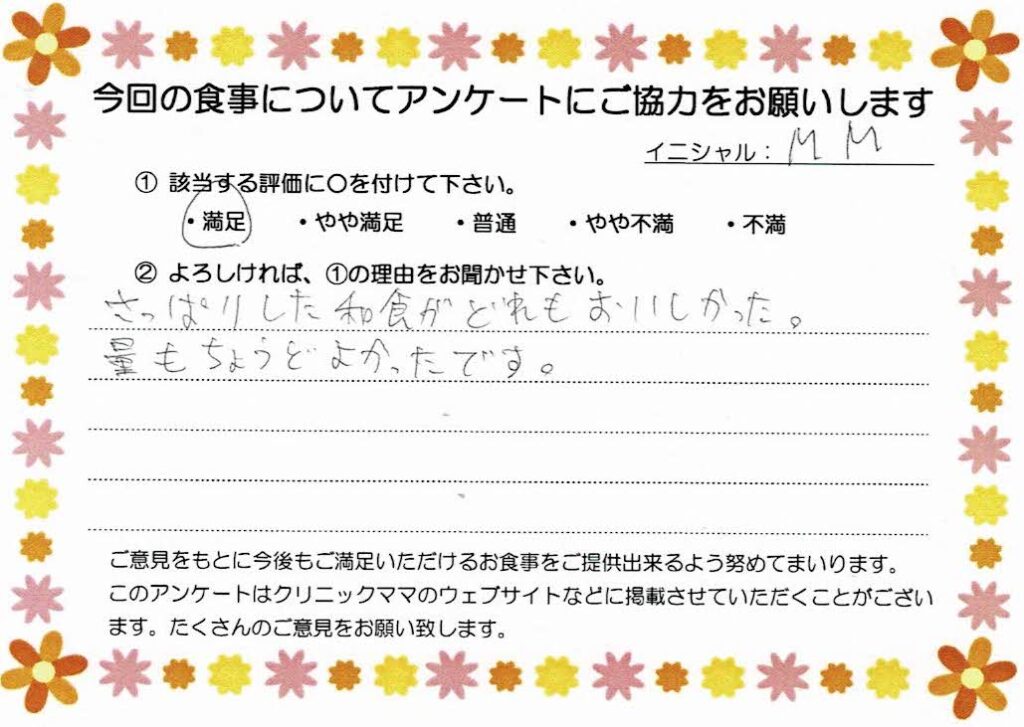 今回の食事についてアンケートにご協力をお願いします
イニシャル：M M
① 該当する評価に〇を付けて下さい。
・満足 ・やや満足 ・普通 ・やや不満 ・不満
② よろしければ、①の理由をお聞かせ下さい。
さっぱりした和食がどれもおいしかった。
量もちょうどよかったです。
ご意見をもとに今後もご満足いただけるお食事をご提供出来るよう努めてまいります。
このアンケートはクリニックママのウェブサイトなどに掲載させていただくことがござい
ます。たくさんのご意見をお願い致します。